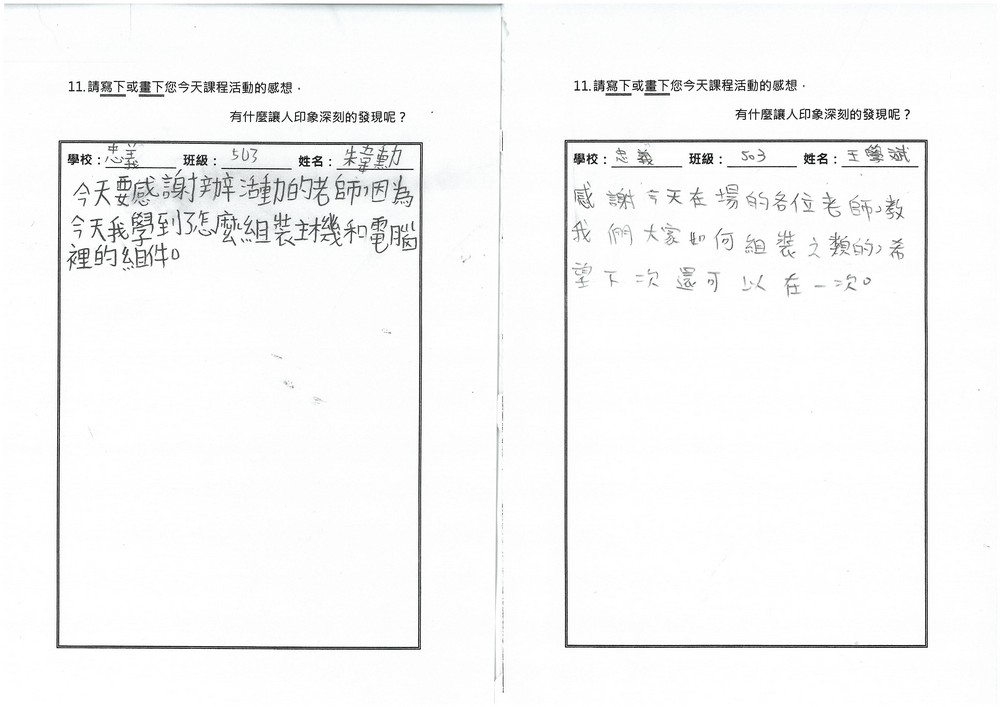 11.請寫下或畫下您今天課程活動的感想，
有什麼讓人印象深刻的發現呢？
學校：忠義 班級：503 姓名：朱韋勳
今天要感謝辦活動的老師，因為
今天我學到了怎麼組裝主機和電腦
裡的組件。
11.請寫下或畫下您今天課程活動的感想，
有什麼讓人印象深刻的發現呢？
學校：忠義 班級：503 姓名：王學斌
感謝今天在場的各位老師，教
我們大家如何組裝之類的，希
望下次還可以在一次。